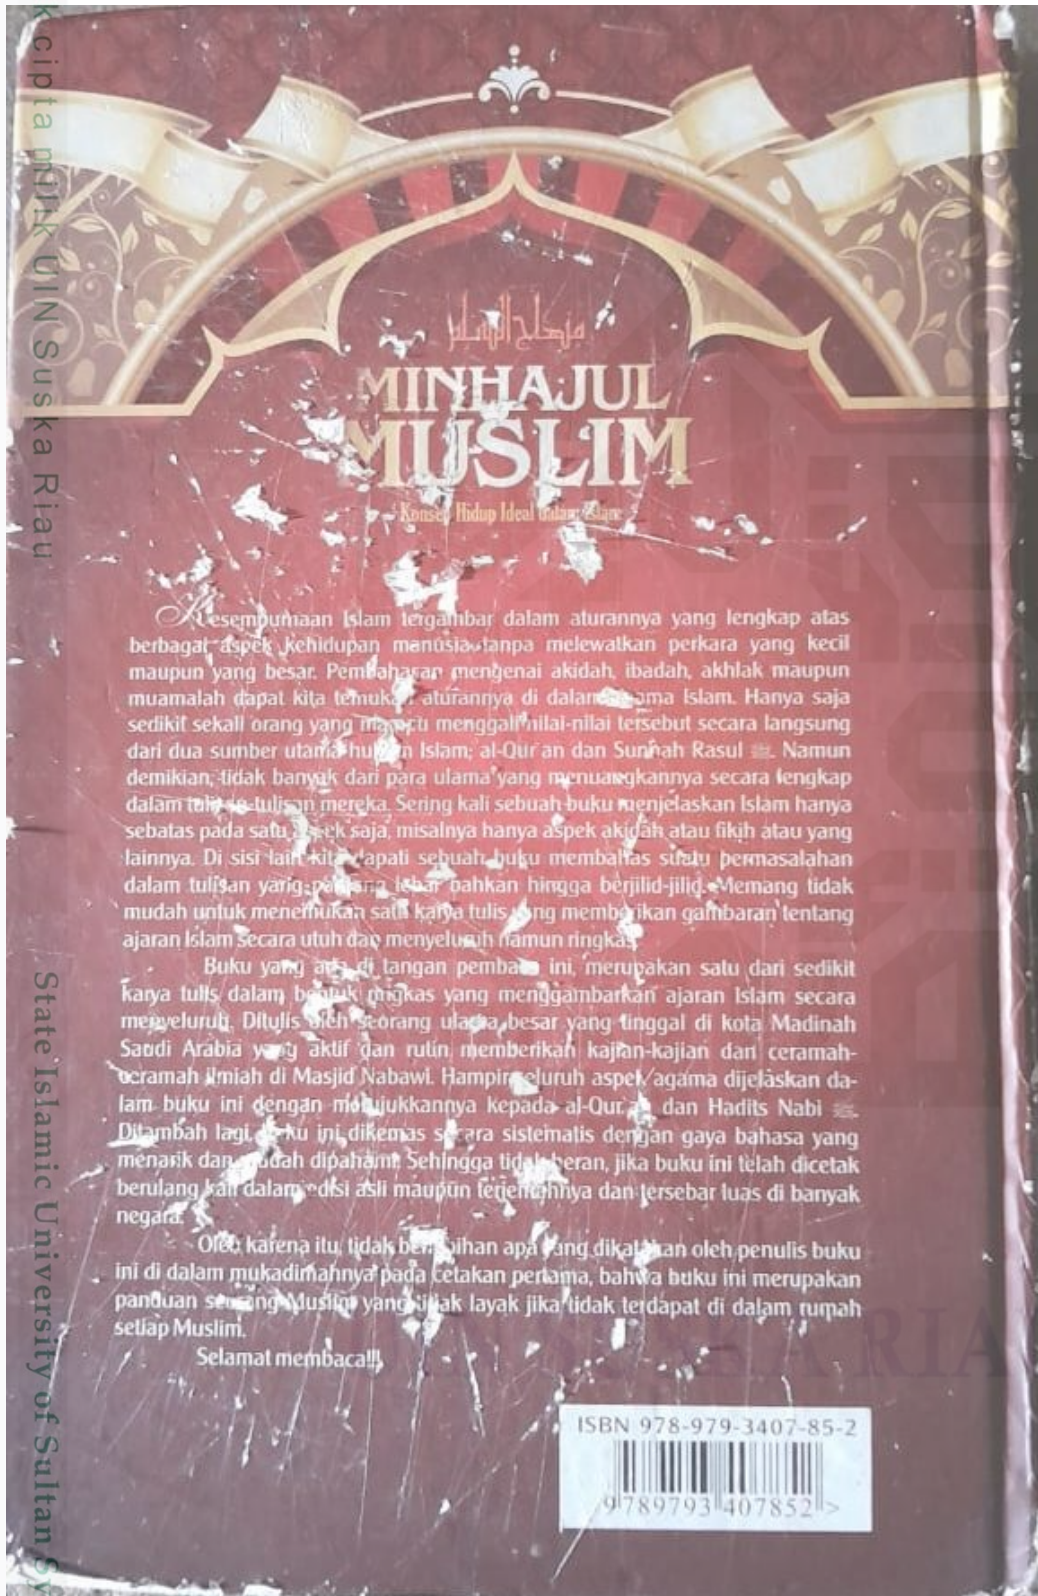 k cipta milik UIN Suska Riau
منهاج المسلم
MINHAJUL
MUSLIM
Konsep Hidup Ideal dalam Islam
Kesempurnaan Islam tergambar dalam aturannya yang lengkap atas
berbagai aspek kehidupan manusia tanpa melewatkan perkara yang kecil
maupun yang besar. Pembahasan mengenai akidah, ibadah, akhlak maupun
muamalah dapat kita temukan aturannya di dalam agama Islam. Hanya saja
sedikit sekali orang yang mampu menggali nilai-nilai tersebut secara langsung
dari dua sumber utama hukum Islam; al-Qur'an dan Sunnah Rasul ﷺ. Namun
demikian, tidak banyak dari para ulama yang menuangkannya secara lengkap
dalam tulisan-tulisan mereka. Sering kali sebuah buku menjelaskan Islam hanya
sebatas pada satu aspek saja, misalnya hanya aspek akidah atau fikih atau yang
lainnya. Di sisi lain kita dapati sebuah buku membahas suatu permasalahan
dalam tulisan yang panjang lebar bahkan hingga berjilid-jilid. Memang tidak
mudah untuk menemukan satu karya tulis yang memberikan gambaran tentang
ajaran Islam secara utuh dan menyeluruh namun ringkas.
Buku yang ada di tangan pembaca ini, merupakan satu dari sedikit
karya tulis dalam bentuk ringkas yang menggambarkan ajaran Islam secara
menyeluruh. Ditulis oleh seorang ulama besar yang tinggal di kota Madinah
Saudi Arabia yang aktif dan rutin memberikan kajian-kajian dan ceramah-
ceramah ilmiah di Masjid Nabawi. Hampir seluruh aspek agama dijelaskan da-
lam buku ini dengan merujukkannya kepada al-Qur'an dan Hadits Nabi ﷺ.
Ditambah lagi, buku ini dikemas secara sistematis dengan gaya bahasa yang
menarik dan mudah dipahami. Sehingga tidak heran, jika buku ini telah dicetak
berulang kali dalam edisi asli maupun terjemahnya dan tersebar luas di banyak
negara.
Oleh karena itu, tidak berlebihan apa yang dikatakan oleh penulis buku
ini di dalam mukadimahnya pada cetakan pertama, bahwa buku ini merupakan
panduan seorang Muslim yang tidak layak jika tidak terdapat di dalam rumah
setiap Muslim.
Selamat membaca!!!
State Islamic University of Sultan Sy
SUSKA RIA
ISBN 978-979-3407-85-2
9 789793 407852 >